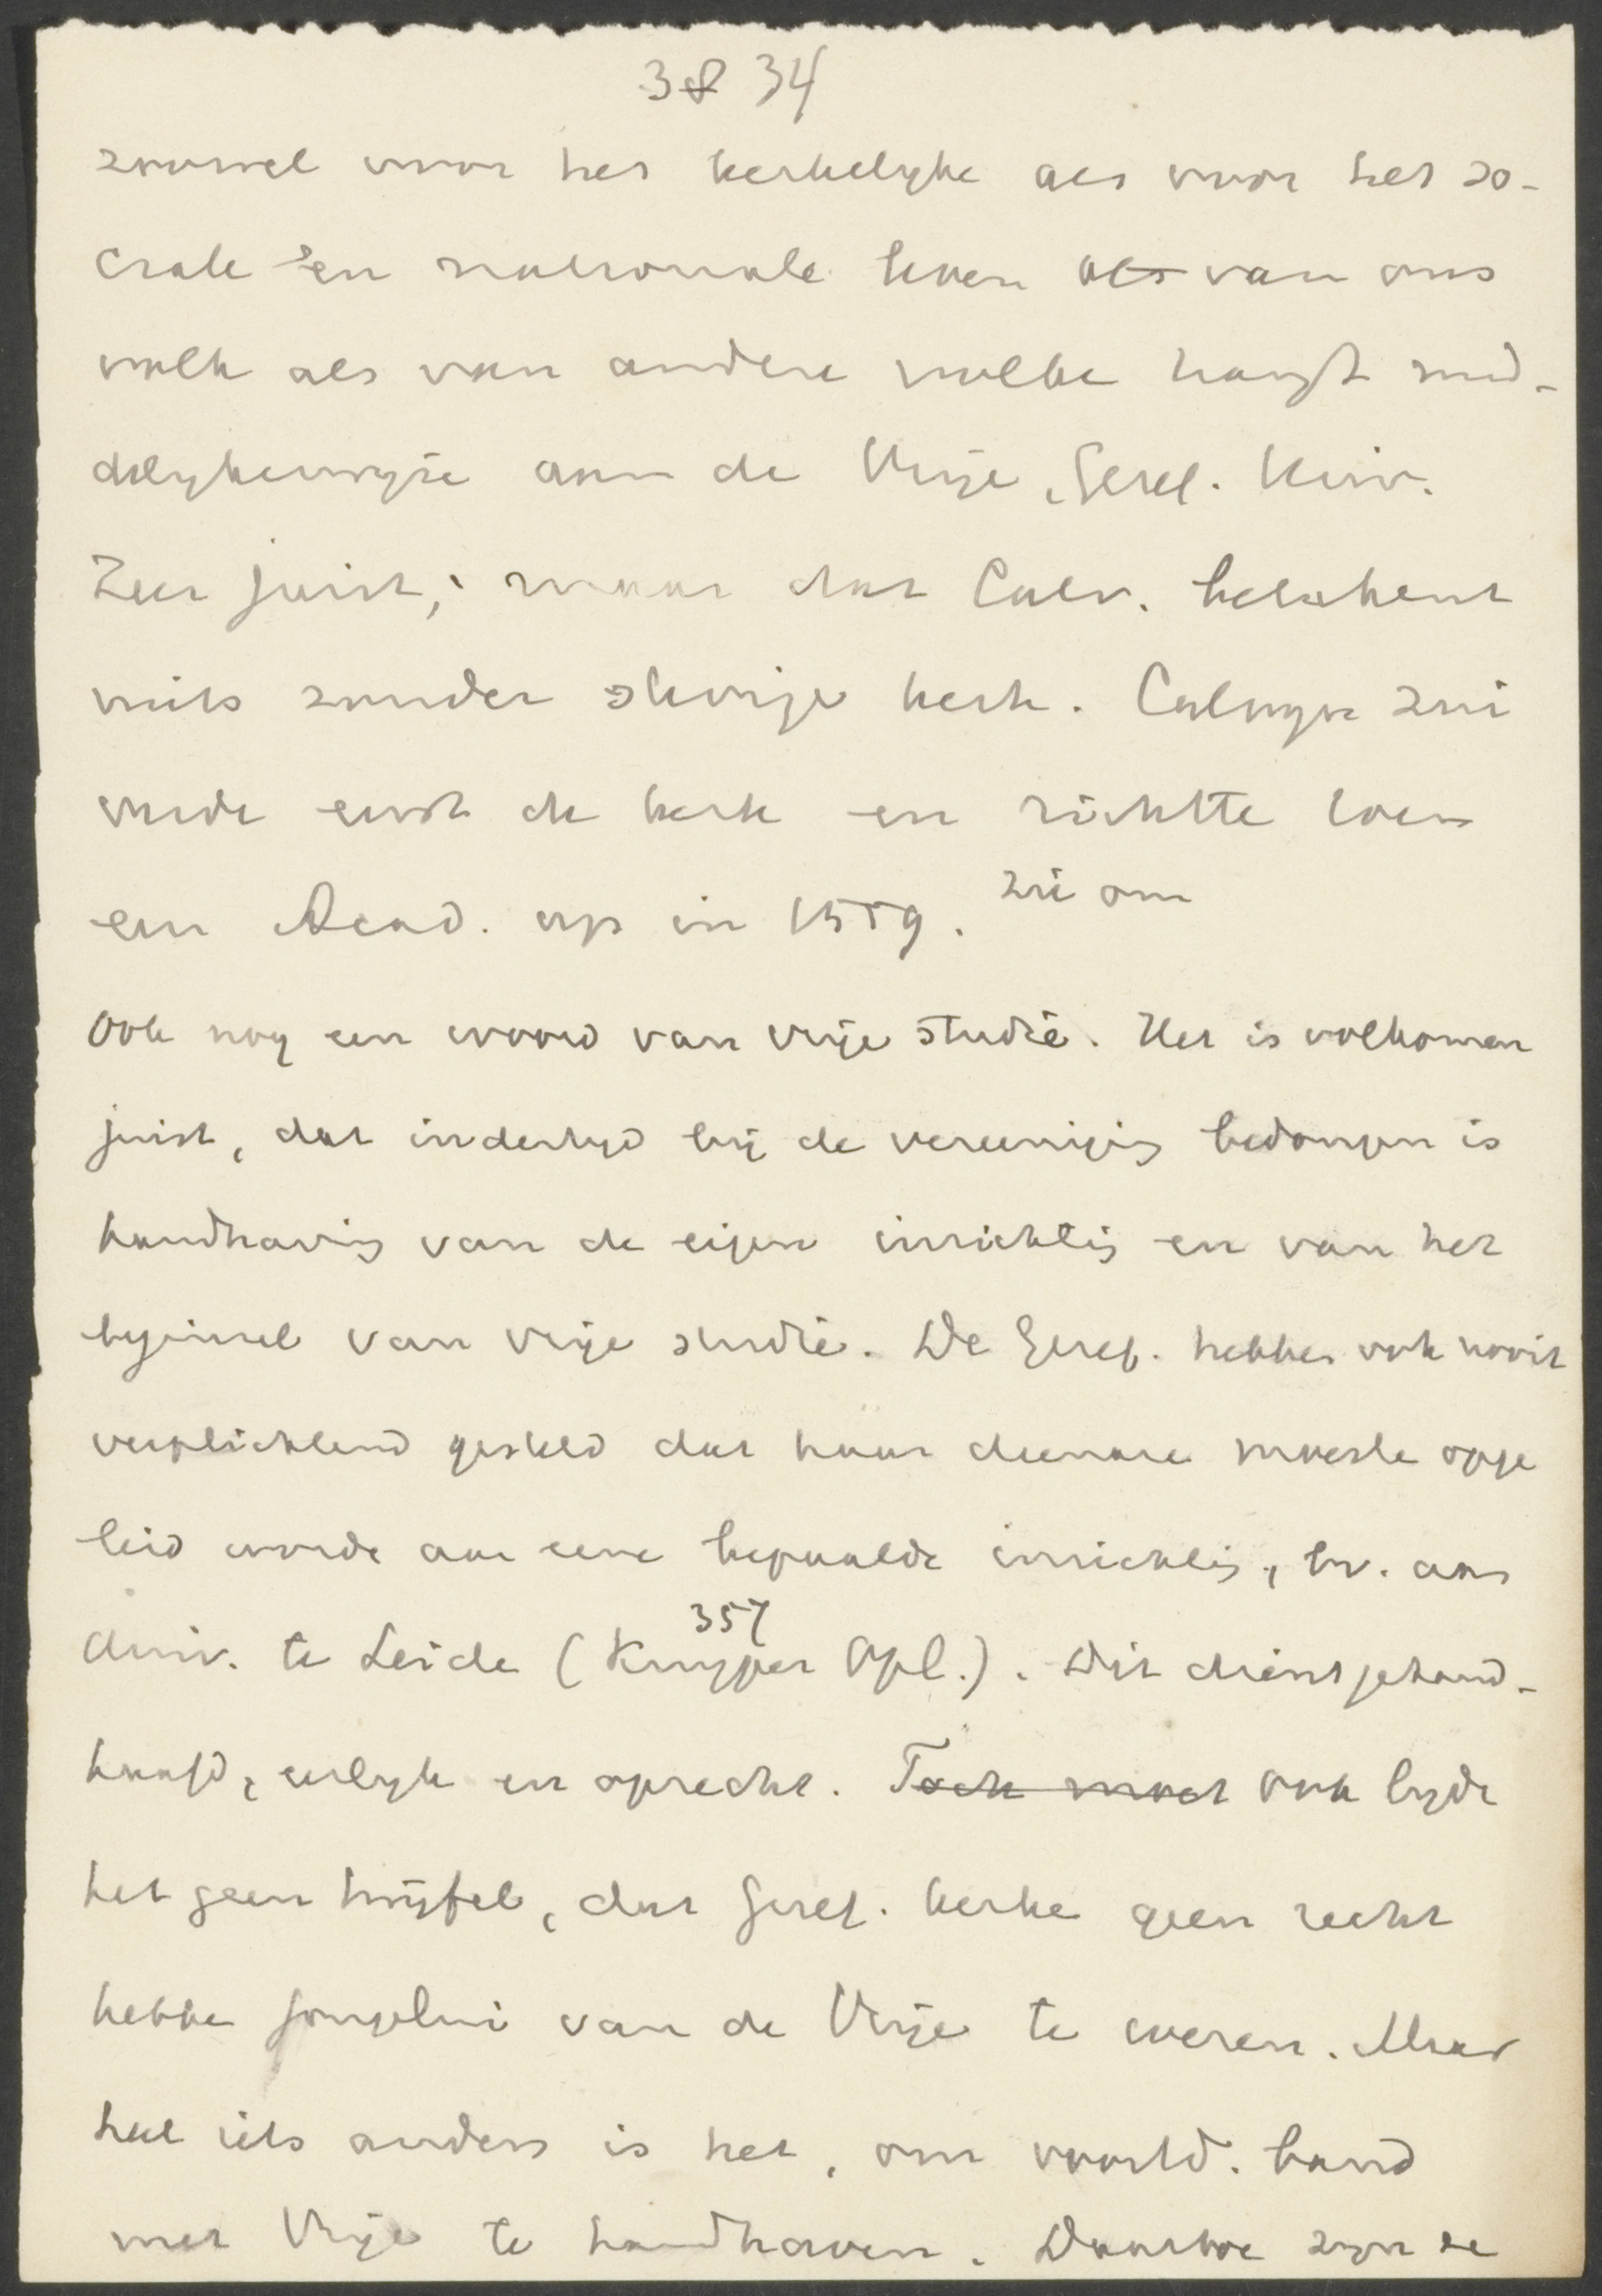 38 34
zoowel voor het kerkelyke als voor het so-
ciale en nationale leven als van ons
volk als van andere volke hangt mid-
delykerwyze aan de Vrije Geref. Univ.
Zeer juist; maar dat Calv. beteekent
niets zonder stevige kerk. Calvyn zui
verde eerst de kerk en richtte toen
een Acad. op in 1559. zie om
Ook nog een woord van vrije studie. Het is volkomen
juist, dat indertyd bij de vereeniging bedongen is
handhaving van de eigen inrichting en van het
beginsel van vrije studie. De Geref. hebben ook nooit
verplichtend gesteld dat haar dienare moeste opge
leid worde aan eene bepaalde inrichting, bv. aan
Univ. te Leide (Kuyper 357 Opl.). Dit dient gehand-
haafd, eerlyk en oprecht. Toch moet Ook lydt
het geen twijfel, dat Geref. kerke geen recht
hebbe jongelui van de Vrije te weren. Maar
heel iets anders is het, om voortd. band
met Vrije te handhaven. Daartoe zyn ze